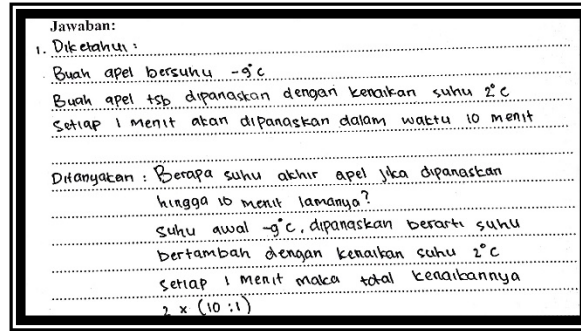 Jawaban:
1. Diketahui :
Buah apel bersuhu -9°C
Buah apel tsb dipanaskan dengan kenaikan suhu 2°C
Setiap 1 menit akan dipanaskan dalam waktu 10 menit
Ditanyakan : Berapa suhu akhir apel jika dipanaskan
hingga 10 menit lamanya?
Suhu awal -9°C, dipanaskan berarti suhu
bertambah dengan kenaikan suhu 2°C
Setiap 1 menit maka total kenaikannya
2 x (10 : 1)